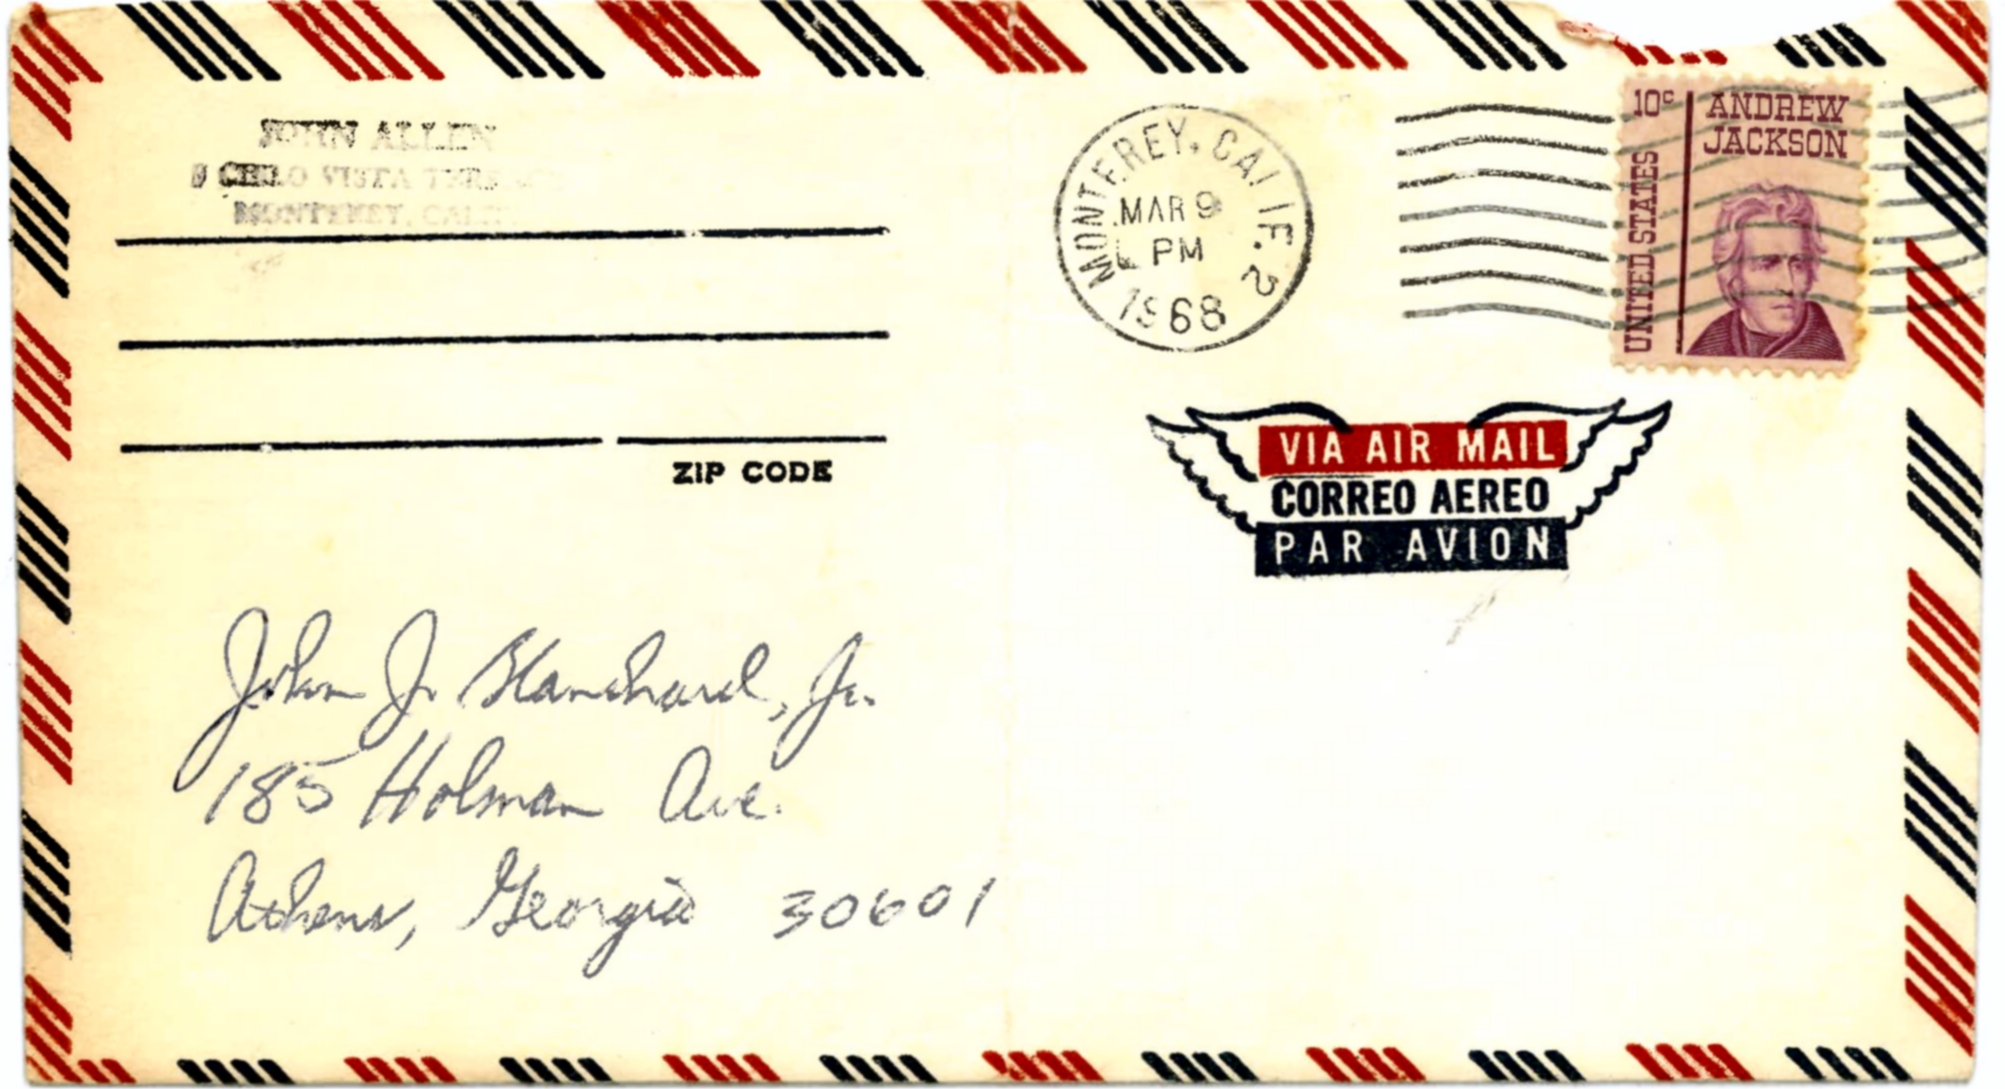 JOHN ALLEN
VISTA
MONTEREY, CALIF.
ZIP CODE
MONTEREY, CALIF. 2
MAR 9
PM
1968
10c
ANDREW
JACKSON
UNITED STATES
VIA AIR MAIL
CORREO AEREO
PAR AVION
John J. Blanchard, Jr.
185 Holman Ave.
Athens, Georgia 30601